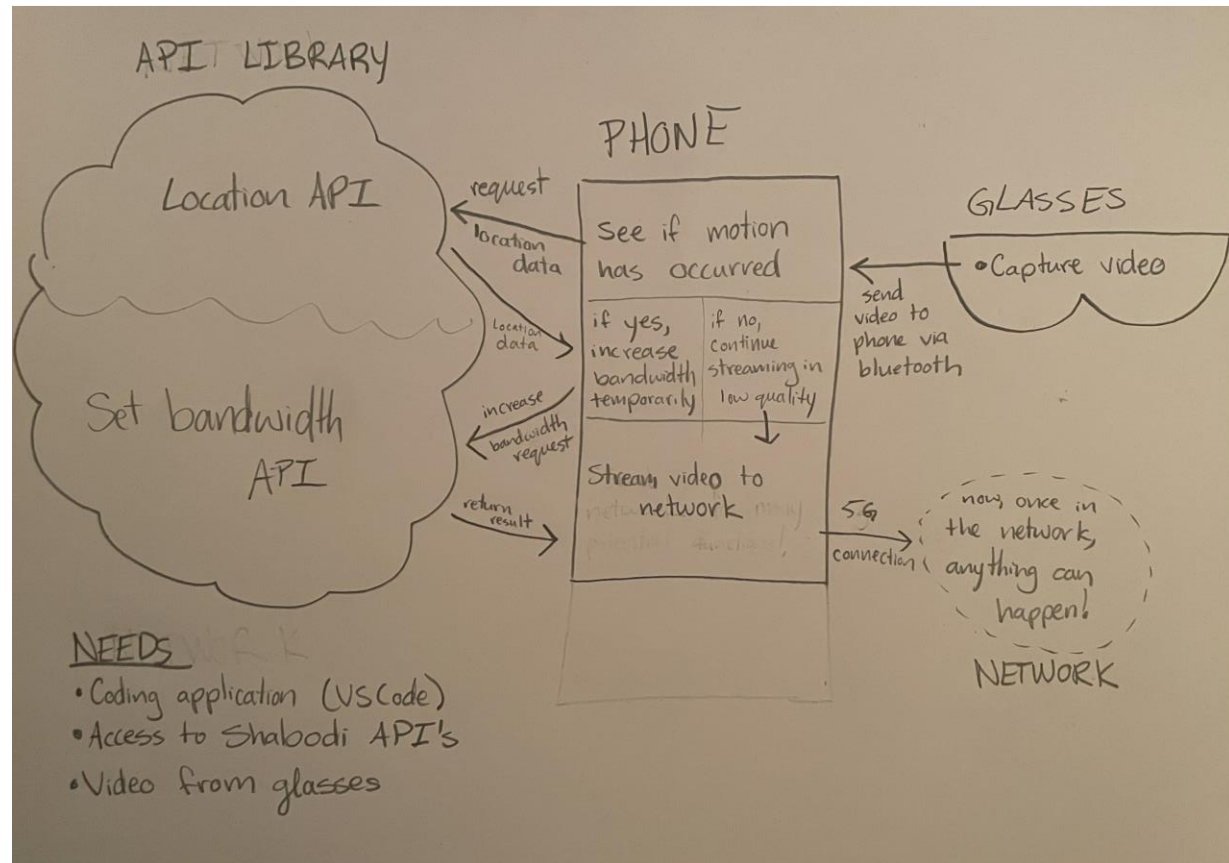 API LIBRARY
Location API
Set bandwidth
API
request
location
data
Location
data
increase
bandwidth
request
return
result
PHONE
See if motion
has occurred
if yes,
increase
bandwidth
temporarily
if no,
continue
streaming in
low quality
Stream video to
network
GLASSES
•Capture video
send
video to
phone via
bluetooth
5G
connection
now, once in
the network,
anything can
happen!
NETWORK
NEEDS
•Coding application (VSCode)
•Access to Shabodi API's
•Video from glasses